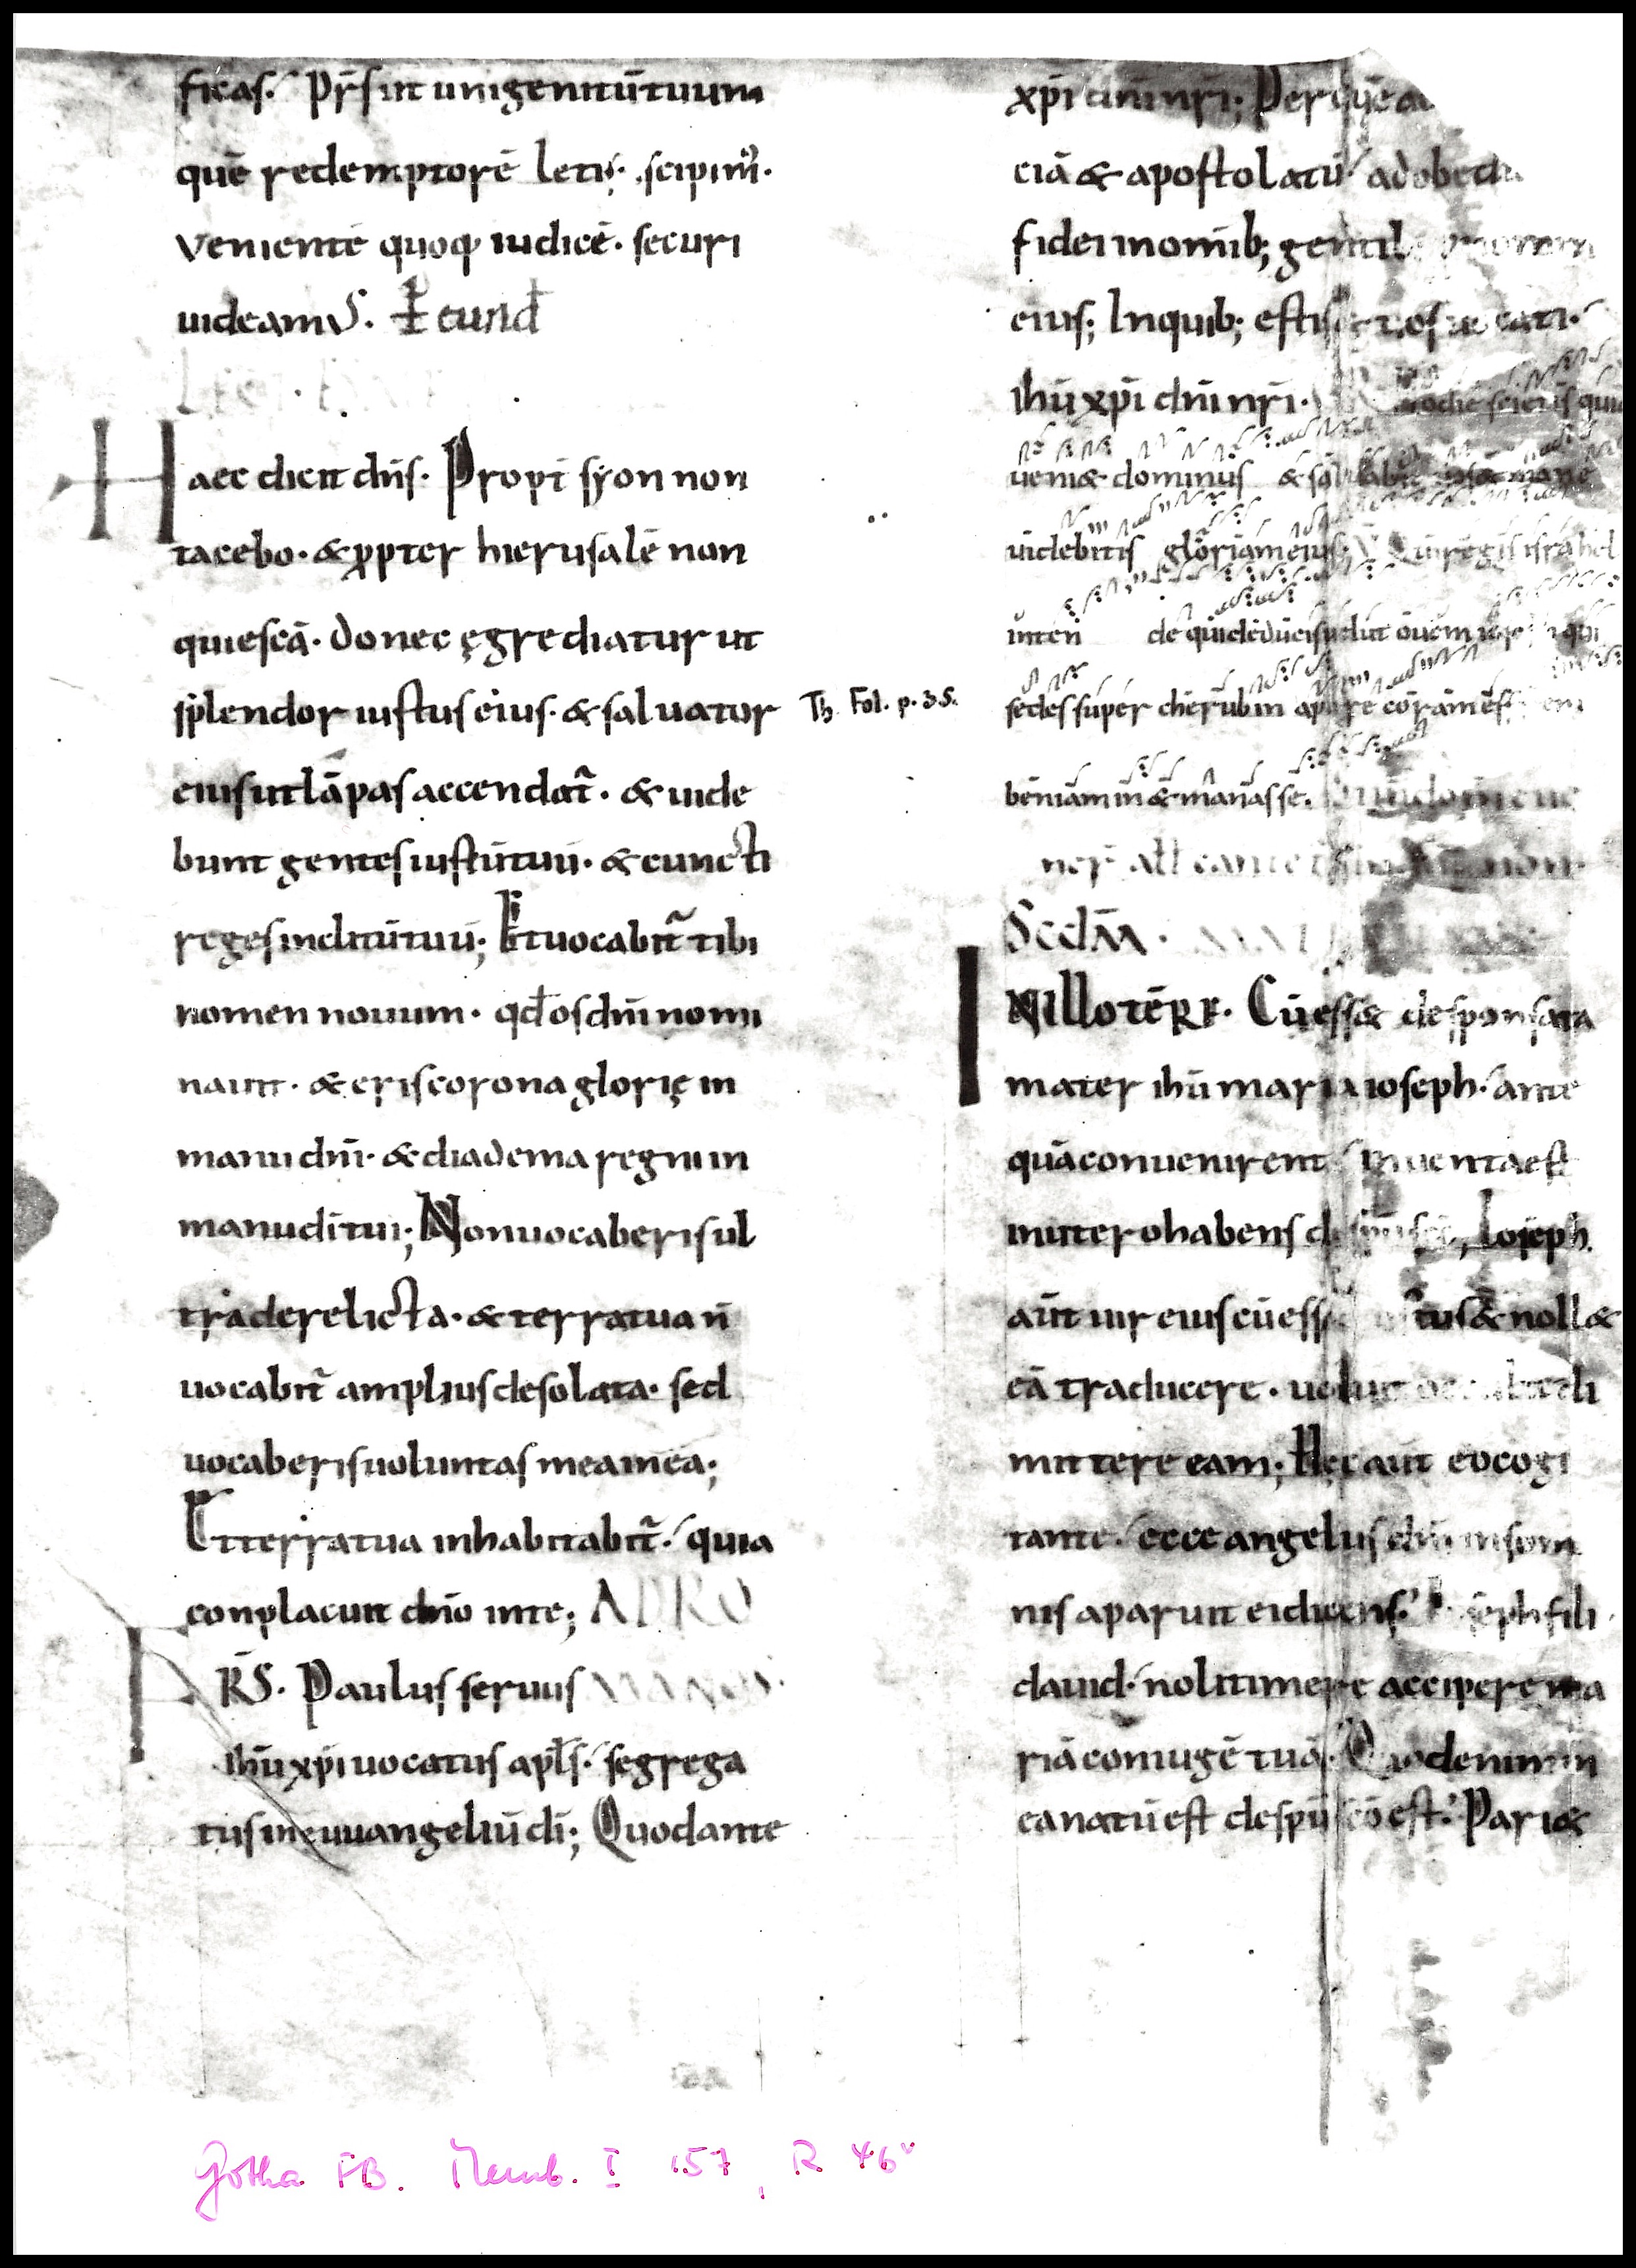 ficas. Pr̄s ut unigenitū tuum
quē redemptorē letiˢ. scipim̄ˀ.
veniente quoq; iudicē. securi
uideamuS. ꝑ eund
Lec.
Haec dicit dn̄s. Propt syon non
tacebo. & ꝓpter hierusalē non
quiescā. donec ęgrediatur ut
splendor iustus eius. & saluator
eius ut lāpas accendat̄. & uide
bunt gentes iustū tuū. & cuncti
reges inclitū tuū; Et uocabit̄ tibi
nomen nouum. qd os dn̄i nomi
nauit. & eris corona glorię in
manu dn̄i. & diadema regni in
manu di tui; Non uocaberis ul
tra derelicta. & terra tua n̄
uocabit̄ amplius desolata. sed
uocaberis uoluntas mea in ea;
Et terra tua inhabitabit̄. quia
conplacuit dn̄o in te; AD RO
FRS. Paulus seruus MANOS.
ihū xp̄i uocatus apl̄s. segrega
tus in euuangeliū di; Quod ante
Th. Fol. p. 35.
xp̄i dn̄i nr̄i; Per quē a
ciā & apostolatū ad obedi
fidei in omīb; gentib;
eius; In quib; estis & uos uocati.
ihū xp̄i dn̄i nr̄i. R hodie scietis quia
ueni& dominus & saluabit nos & mane
uidebitis gloriam eius. V Qui regis israhel
inten de qui deducis uelut ouem ioseph qui
sedes super cherubin apare coram effrem
beniamin & manasse.
Scdm̄.
IN illo tēpr. Cū ess& desponsata
mater ihū maria ioseph. ante
quā conuenirent inuenta est
in utero habens de spū scō; Ioseph
aūt uir eius cū ess& iustus & noll&
eā traducere. uoluit occulte di
mittere eam; Hęc aūt eo cogi
tante. ecce angelus dn̄i in som
nis aparuit ei dicens. Ioseph fili
dauid. noli timere accipere ma
riā coniugē tuā. Quod enim in
ea natū est de spū scō est. Pari&
Gotha FB. Memb. I 157, R 46v